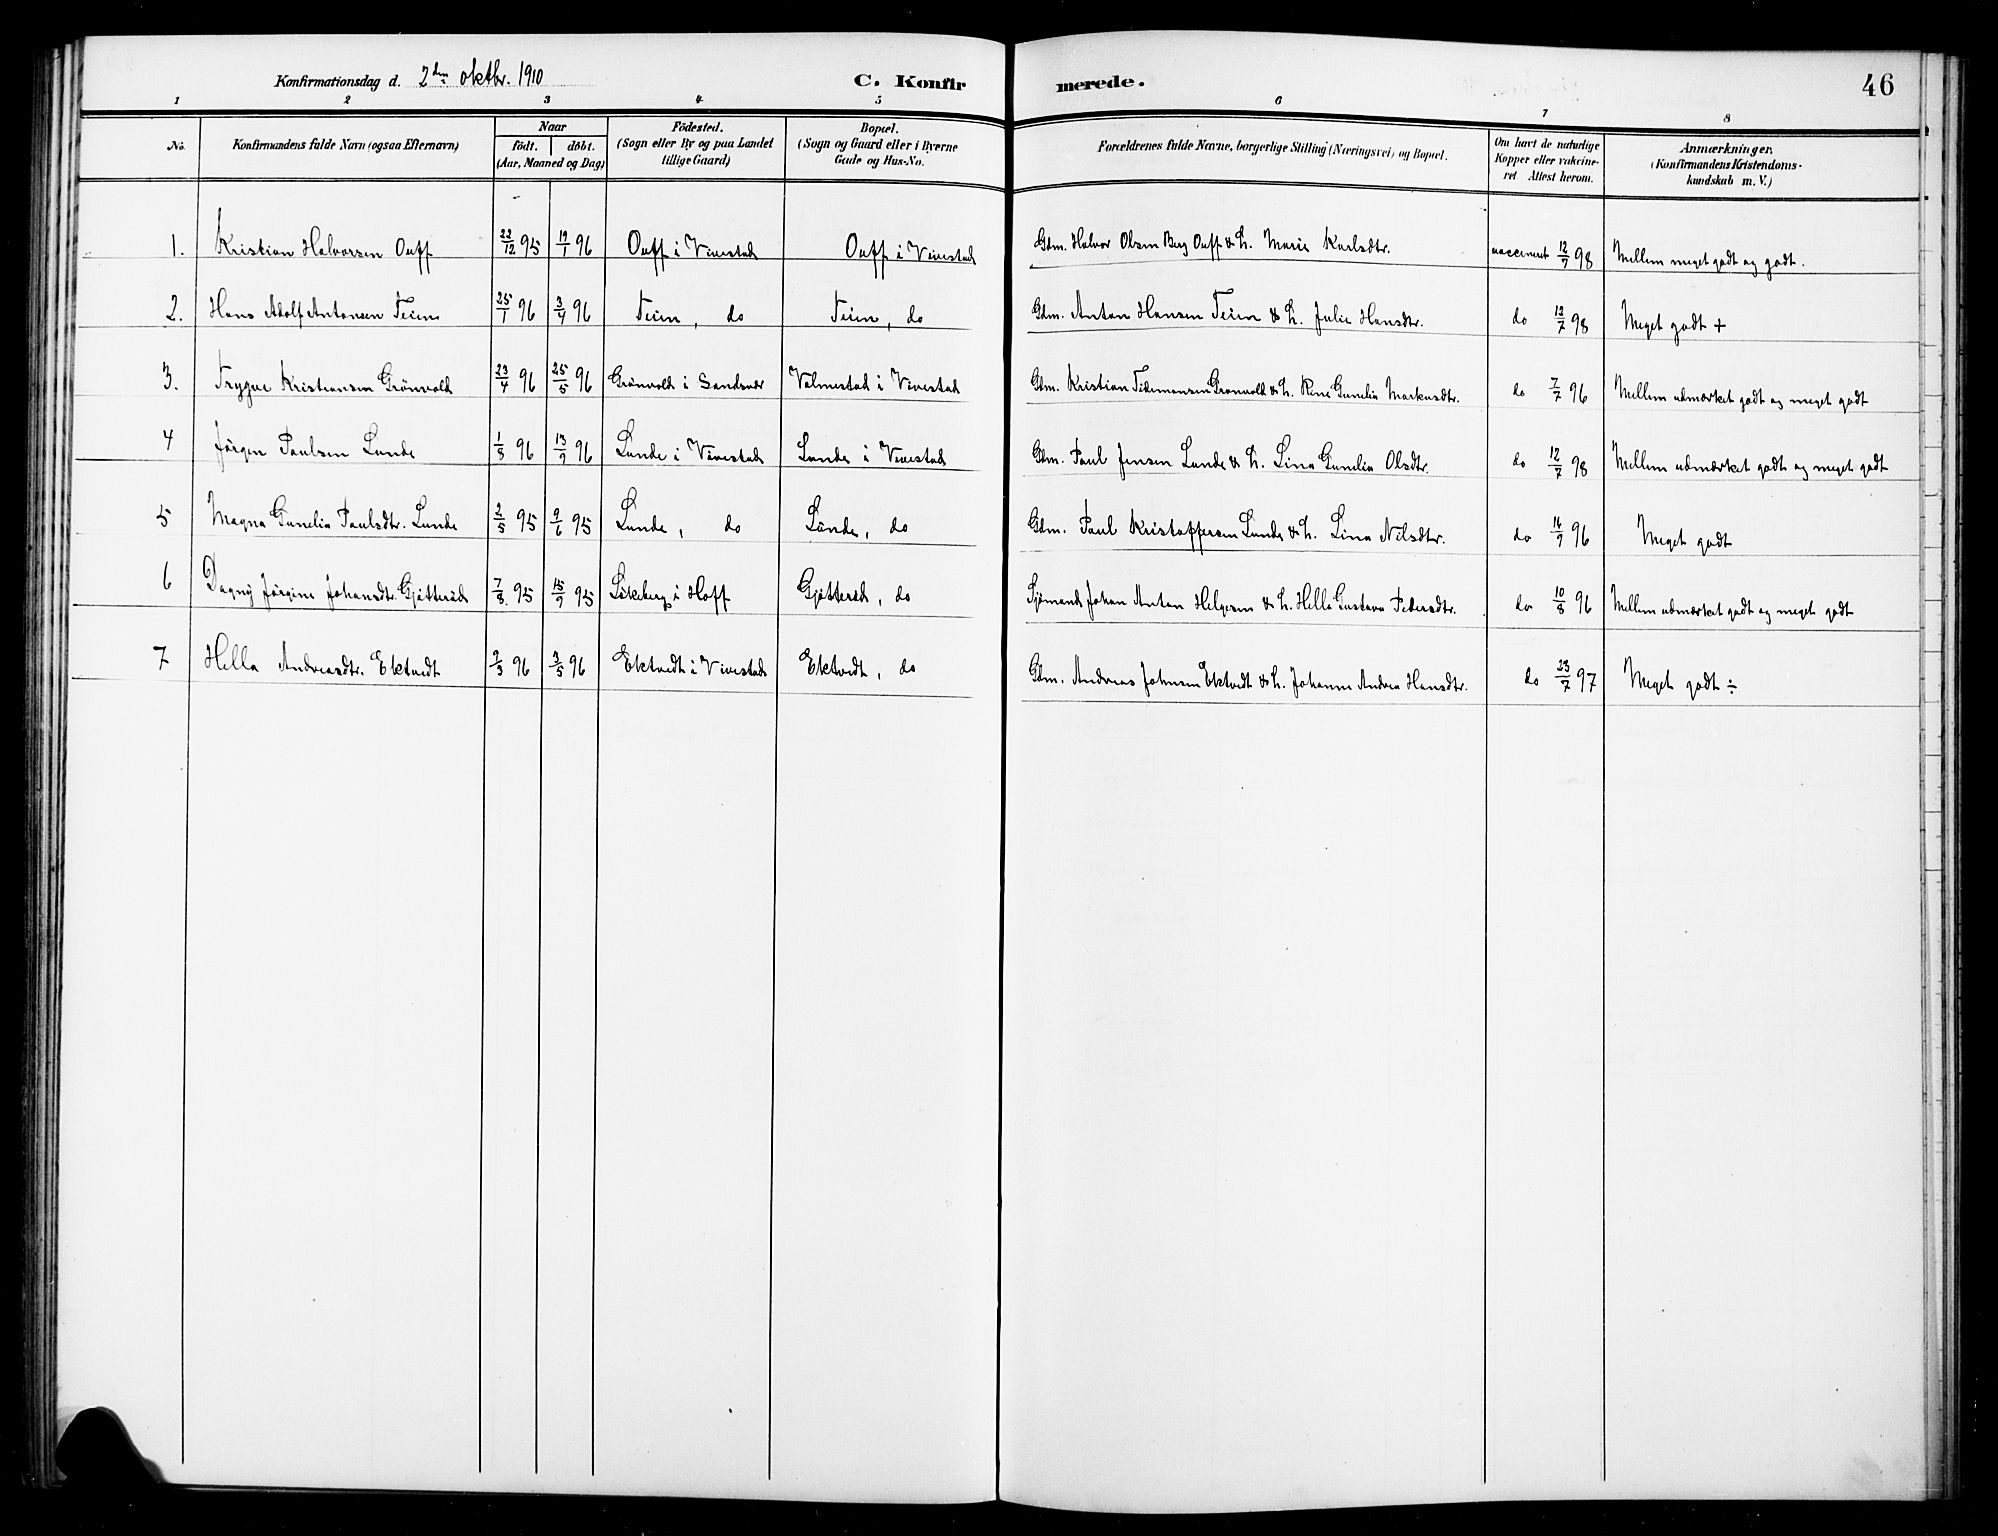 Konfirmationsdag d. 2den oktbr. 1910 C. Konfirmerede. 46
1 2 3 4 5 6 7 8
No. Konfirmandens fulde Navn (ogsaa Efternavn) Naar födt. döbt. (Aar, Maaned og Dag) Födested. (Sogn eller By og paa Landet tillige Gaard) Bopæl. (Sogn og Gaard eller i Byerne Gade og Hus-No. Forældrenes fulde Navne, borgerlige Stilling (Næringsvei) og Bopæl. Om havt de naturlige Kopper eller vakcineret Attest herom. Anmærkninger, (Konfirmandens Kristendomskundskab m. V.)
1. Kristian Halvorsen Ouff 22/12 95 12/1 96 Ouff i Vivestad Ouff i Vivestad Gdm. Halvor Olsen Berg Ouff & h. Marie Karlsdtr. vaccineret 12/7 98 Mellem meget godt og godt.
2. Hans Adolf Antonsen Teien 25/1 96 3/4 96 Teien, do Teien, do Gdm. Anton Hansen Teien & h. Julie Hansdtr. do 12/7 98 Meget godt +
3. Trygve Kristiansen Grönvold 23/4 96 25/5 96 Grönvold i Sandsvær Valmestad i Vivestad Gdm. Kristian Tidemansen Grönvold & h. Rine Gunelia Markusdtr. do 7/7 96 Mellem udmærket godt og meget godt
4 Jörgen Paulsen Lunde 1/8 96 13/9 96 Lunde i Vivestad Lunde i Vivestad Gdm. Paul Jensen Lunde & h. Lina Gunelia Olsdtr. do 12/7 98 Mellem udmærket godt og meget godt
5 Magna Gunelia Paulsdtr. Lunde 2/5 95 9/6 95 Lunde, do Lunde, do Gdm. Paul Kristoffersen Lunde & h. Lina Nilsdtr. do 16/9 96 Meget godt
6 Dagny Jörgine Johansdtr. Gjötteröd 7/8 95 15/9 95 i Hoff Gjötteröd, do Sjömand Johan Anton Helgesen & h. Hella Gustava Pedersdtr. do 10/8 96 Mellem udmærket godt og meget godt
7 Hella Andreasdtr. Ektvedt 2/3 96 3/5 96 Ektvedt i Vivestad Ektvedt, do Gdm. Andreas Johnsen Ektvedt & h. Johanne Andrea Hansdtr. do 23/7 97 Meget godt ÷